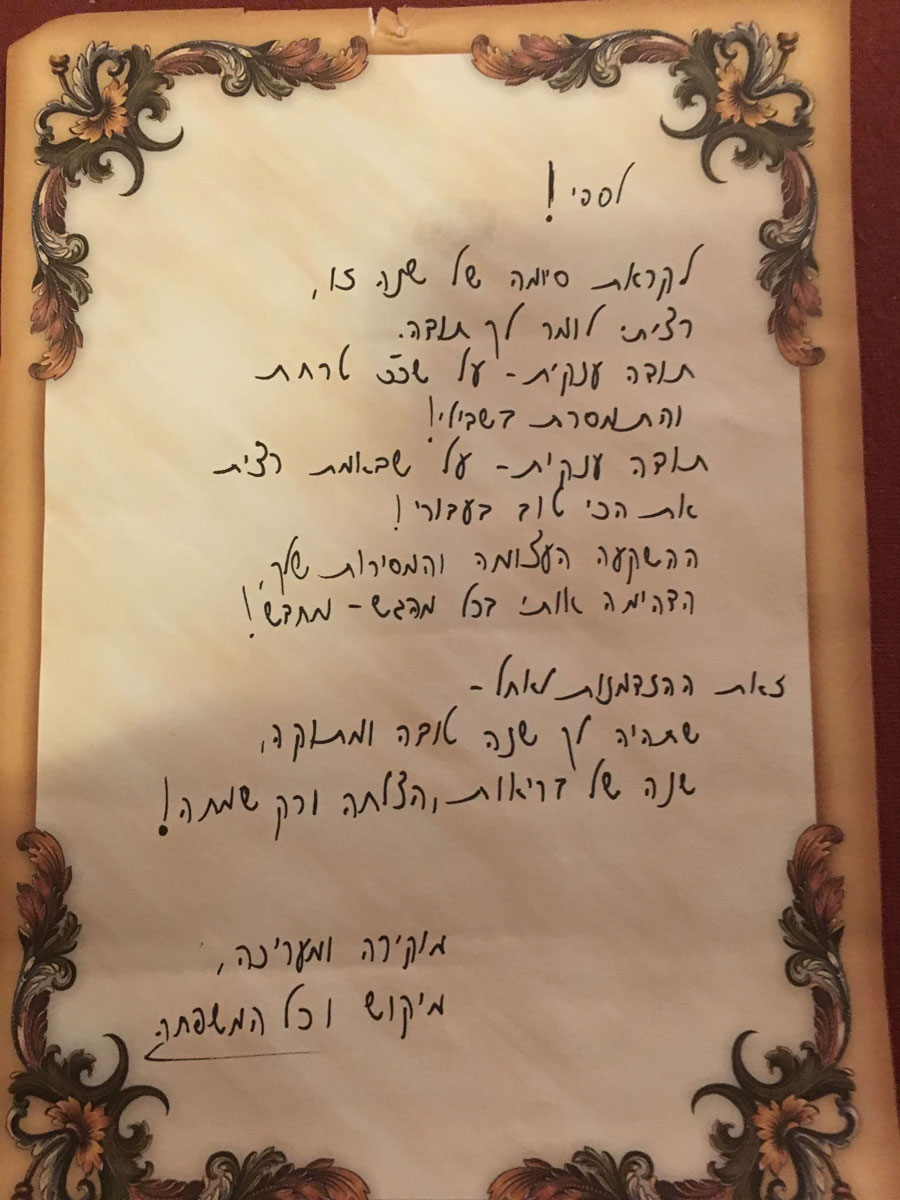 לספי!
לקראת סיומה של שנה זו,
רציתי לומר לך תודה.
תודה ענקית - על שככ טרחת
והתמסרת בשבילי!
תודה ענקית - על שבאמת רצית
את הכי טוב בעבורי!
ההשקעה העצומה והמסירות שלך,
הדהימה אותי בכל מפגש - מחדש!
זאת ההזדמנות לאחל -
שתהיה לך שנה טובה ומתוקה,
שנה של בריאות, הצלחה ורק שמחה!
מוקירה ומעריכה,
מיקוש וכל המשפחה